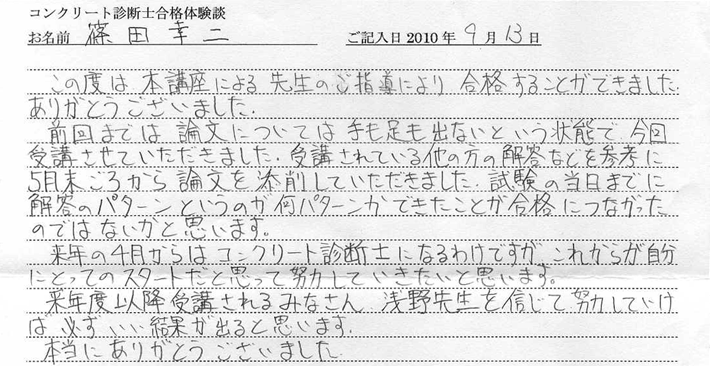 コンクリート診断士合格体験談
お名前 篠田幸二 ご記入日 2010年 9月 13日
この度は 本講座による 先生のご指導により 合格することができました。
ありがとうございました。
前回までは 論文については 手も足も出ないという状態で 今回
受講させていただきました。受講されている他の方の解答などを参考に
5月末ごろから 論文を添削していただきました。試験の当日までに
解答のパターンというのが何パターンかできたことが合格につながった
のではないかと思います。
来年の4月からはコンクリート診断士になるわけですが、これからが自分
にとってのスタートだと思って努力していきたいと思います。
来年度以降受講されるみなさん 浅野先生を信じて努力していけ
ば 必ずいい結果が出ると思います。
本当にありがとうございました。